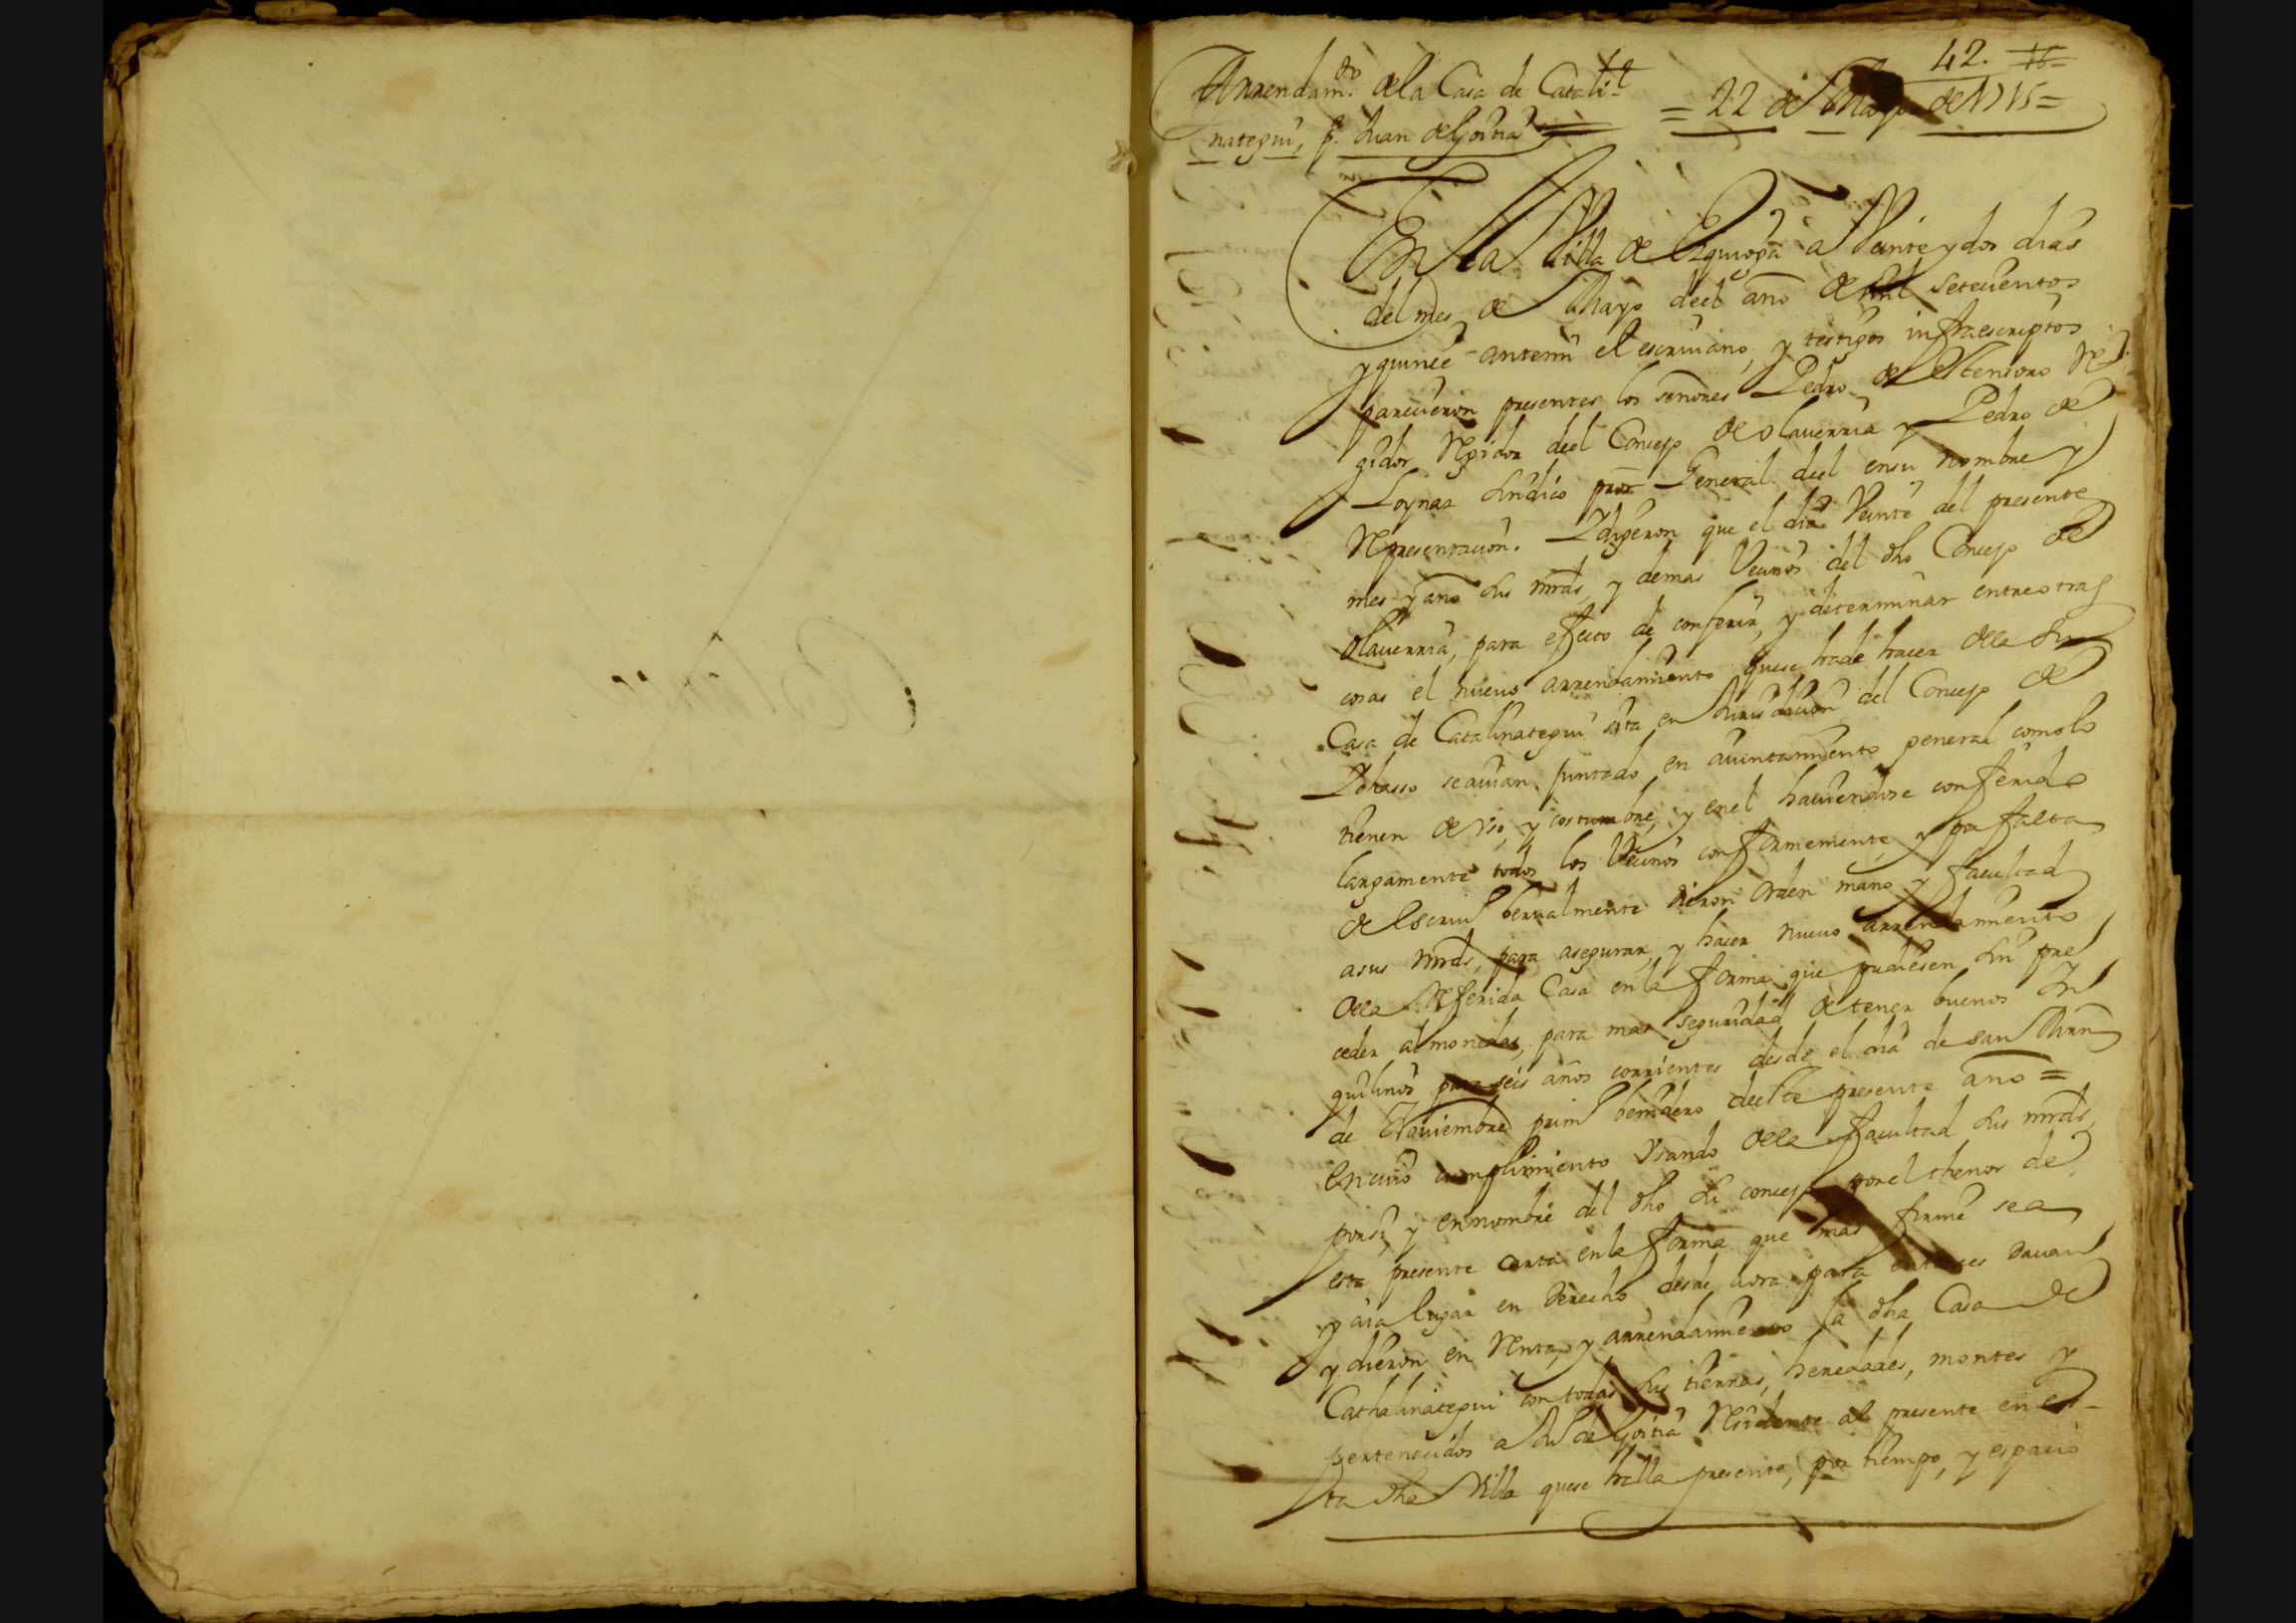 42.
Arrendamto. de la Casa de Catali-
= 22 de Mayo de 1715 =
nategui, pr. Juan de Goitia
En la Villa de Ezquioga a Veinte y dos dias
del mes de Mayo deel año de mil setecientos
y quince antemi el escriuano, y testigos infraescriptos
parecieron presentes los señores Pedro de Re
gidor Regidor deel Concejo de olauerria y Pedro de
Loynaz Sindico pror General deel ensu nombre y
Representacion. Y digeron que el dia Veinte del presente
mes y año sus mrds, y demas Vecinos del dho Concejo de
Olauerria, para efecto de conferir, y determinar entreotras
cosas el nueuo arrendamiento quese hade hacer de la su
Casa de Catalinategui sita en Jurisdicion del Concejo de
Ydiasso seauian juntado en aiuntamiento general comolo
tienen de vso, y costumbre, y enel hauiendose conferido
largamente todos los Vecinos conformemente y por falta
de Escriu verualmente dieron orden mano y facultad
asus mrds, para asegurar, y hacer nueuo arrendamiento
de la Referida Casa enla forma que pudiesen sin pre
ceder almonedas, para mas seguridad de tener buenos In
quilinos para seis años corrientes desde el dia de san Mrn
de Nouiembre prim benidero deeste presente año =
Encuio cumplimiento Vsando de la facultad sus mrds,
porsi, y ennombre del dho su concejo porel thenor de
esta presente carta enla forma que mas firme sea
y aia lugar en derecho, desde aora para entonces dauan
y dieron en Renta, y arrendamiento la dha Casa de
Cathalinategui con todas sus tierras, heredades, montes y
pertenecidos a Ju de Goitia Residente al presente en es-
ta dha Villa quese halla presente, por tiempo, y espacio